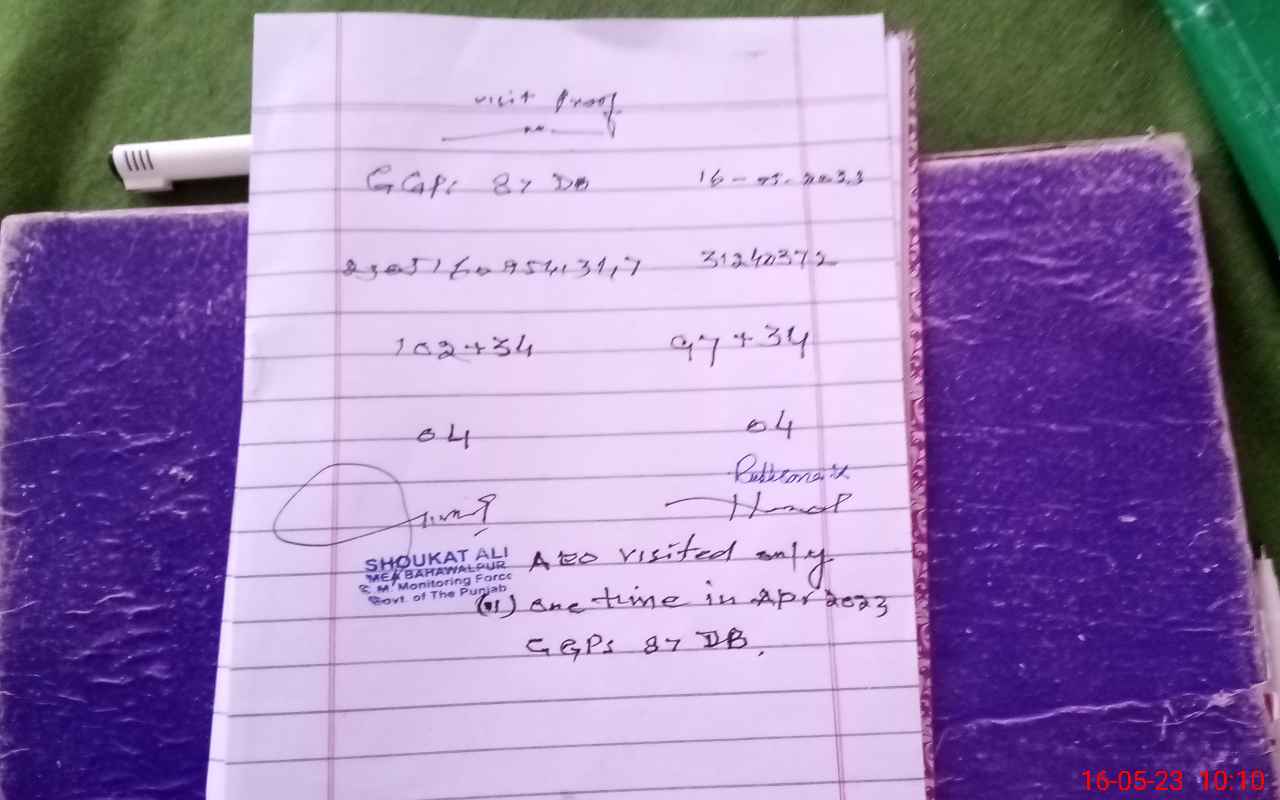 visit Proof
GGPS 87 DB 16-05-2023
31240372
102+34 97+34
04 04
SHOUKAT ALI
MEA BAHAWALPUR
C.M. Monitoring Force
Govt. of The Punjab
AEO visited only
(01) one time in Apr 2023
GGPS 87 DB.
16-05-23 10:10